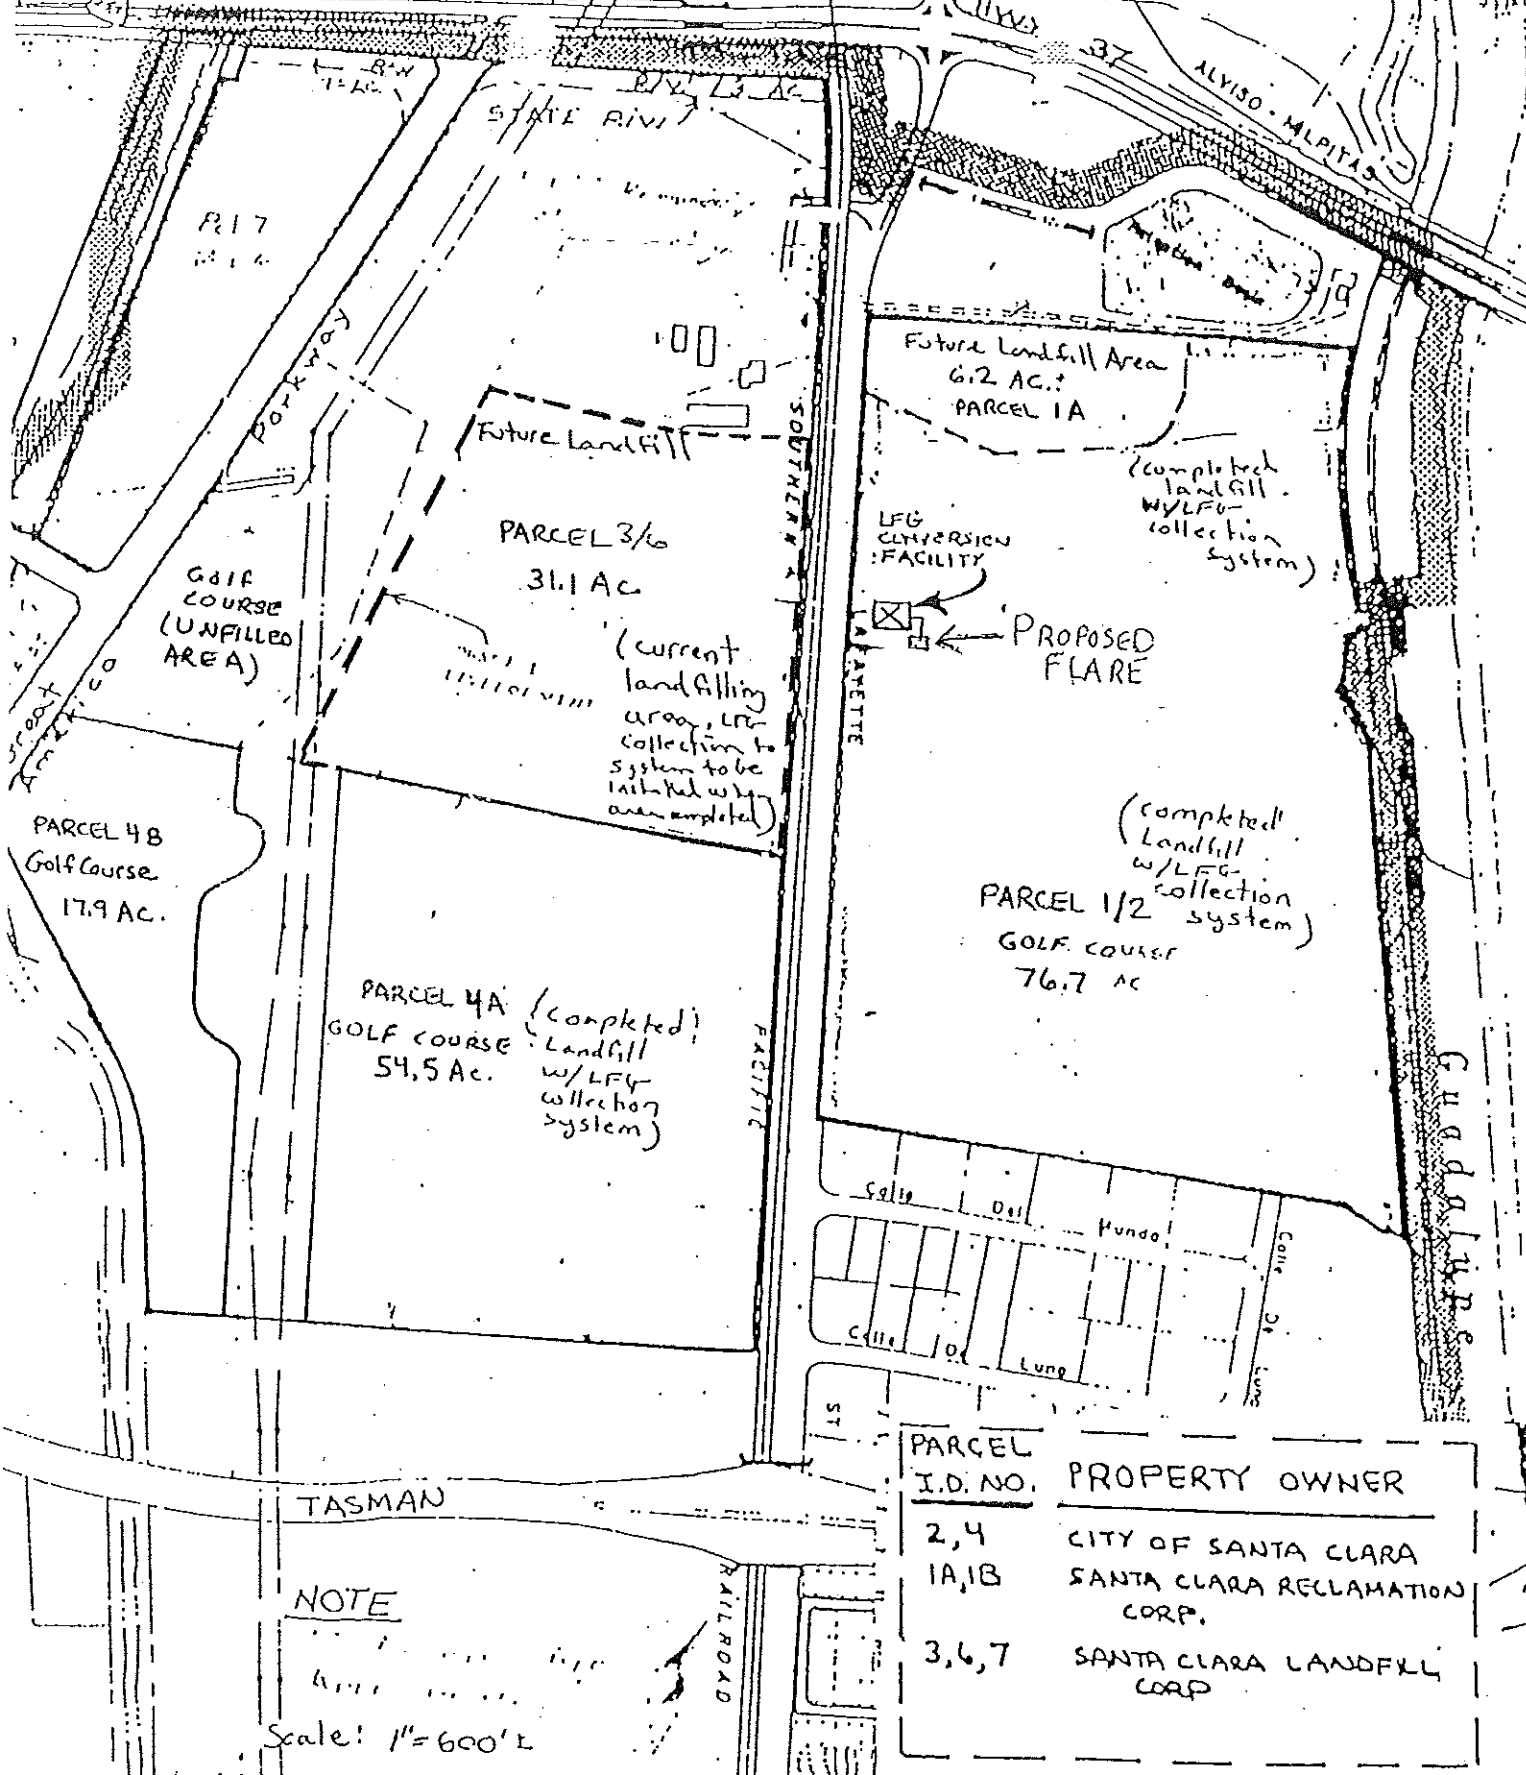 37
ALVISO - MILPITAS
R/W
STATE
Parkway
Future Landfill Area
6.2 AC.±
PARCEL 1A
Future Landfill
(completed
landfill
W/LFG
collection
system)
PARCEL 3/6
31.1 AC.
LFG
CONVERSION
FACILITY
PROPOSED
FLARE
Golf
COURSE
(UNFILLED
AREA)
(current
landfilling
area, LFG
collection to
system to be
installed when
area completed)
SOUTHERN
LAFAYETTE
PARCEL 4B
Golf Course
17.9 AC.
(completed
Landfill
w/LFG
collection
system)
PARCEL 1/2
GOLF COURSE
76.7 AC
PARCEL 4A
GOLF COURSE
54.5 Ac.
(completed
Landfill
w/LFG
collection
system)
PACIFIC
Guadalupe
Calle Del Mundo
Calle De Luna
Calle De Luna
ST
TASMAN
RAILROAD
PARCEL
I.D. NO. PROPERTY OWNER
2,4 CITY OF SANTA CLARA
1A,1B SANTA CLARA RECLAMATION
CORP.
3,6,7 SANTA CLARA LANDFILL
CORP
NOTE
Scale: 1"=600'±